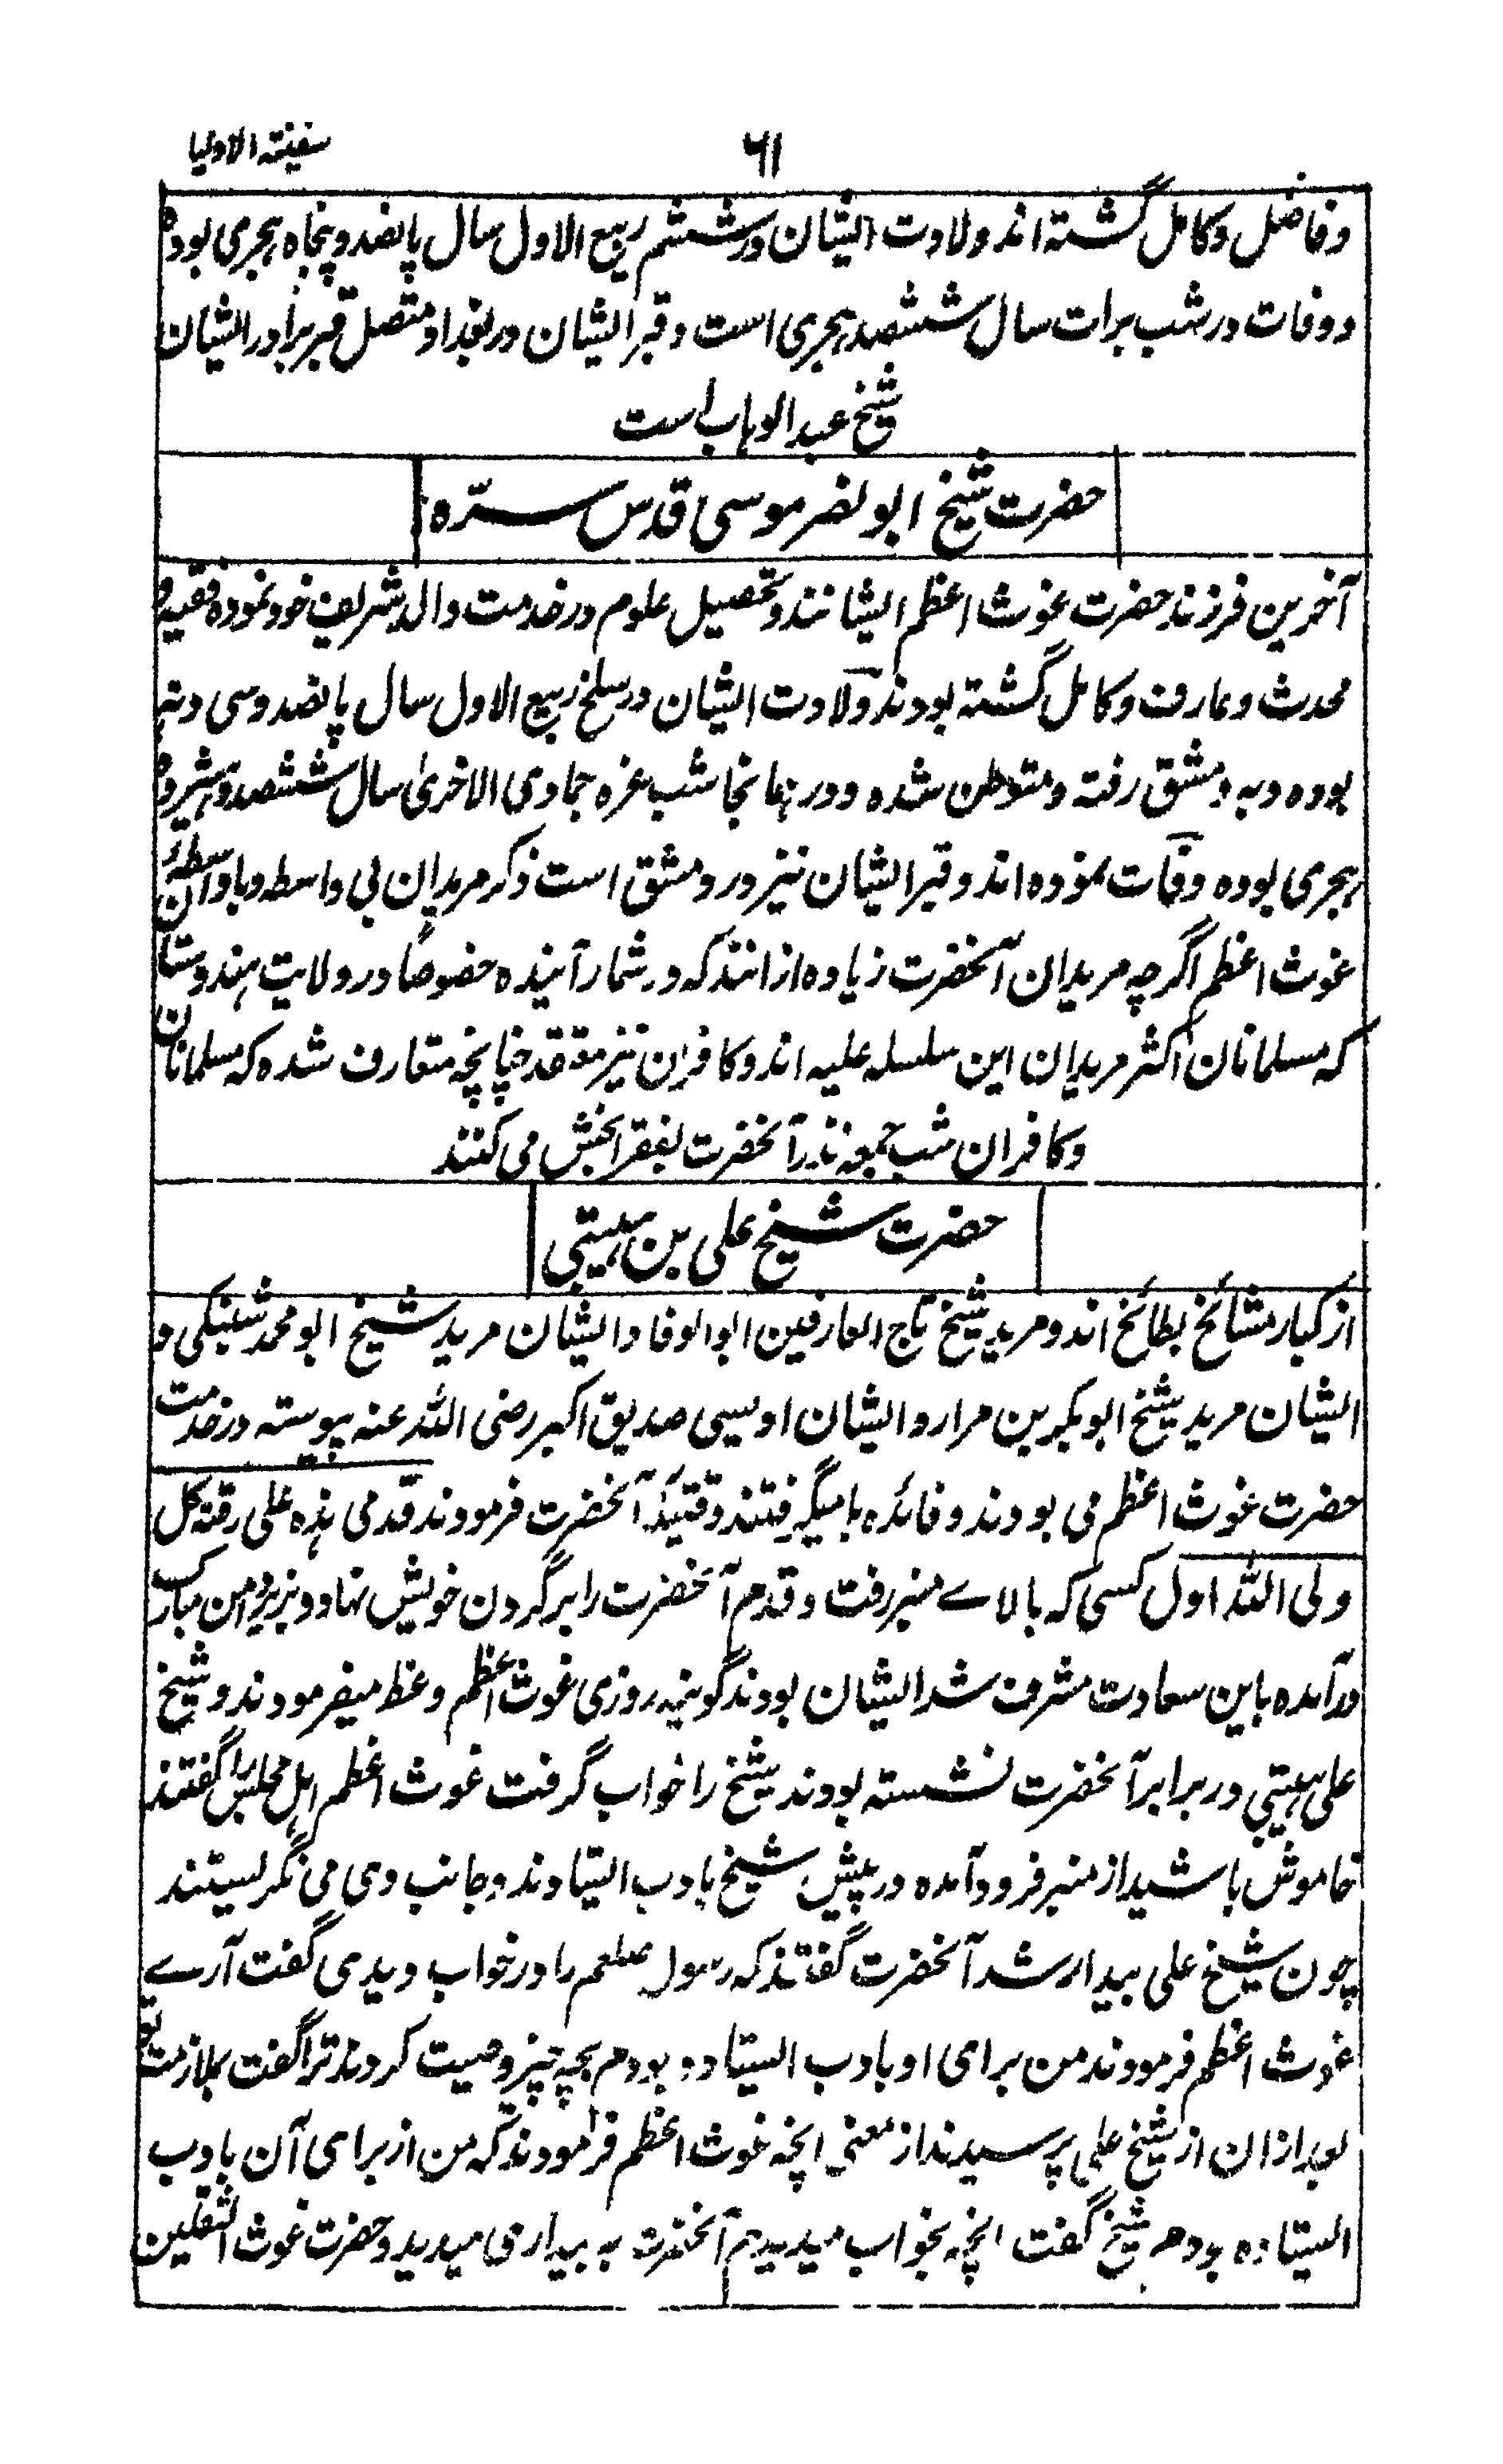 سفینۃ الاولیا
۶۱
و فاضل و کامل گشته اند ولادت ایشان در ششم ربیع الاول سال پانصد و پنجاه هجری بوده
و وفات در شب برات سال ششصد هجری است و قبر ایشان در بغداد متصل قبر برادر ایشان
شیخ عبد الوهاب است
حضرت شیخ ابو نصر موسی قدس سرّه
آخرین فرزند حضرت غوث اعظم ایشانند و تحصیل علوم در خدمت والد شریف خود نموده فقیه و
محدث و عارف و کامل گشته بودند ولادت ایشان در سلخ ربیع الاول سال پانصد و سی و نه
بوده و به دمشق رفته و متوطن شده و در همانجا شب غره جمادی الاخریٰ سال ششصد و هیژده
هجری بوده وفات نموده اند و قبر ایشان نیز در دمشق است ذکر مریدان بی واسطه و با واسطهٔ آن
غوث اعظم اگرچه مریدان آنحضرت زیاده از انند که در شمار آینده خصوصاً در ولایت هندوستان
که مسلمانان اکثر مریدان این سلسله علیه اند و کافران نیز معتقد چنانچه متعارف شده که مسلمانان
و کافران شب جمعه نذر آنحضرت بفقرا بخش می کنند
حضرت شیخ علی بن هیتی
از کبار مشائخ بطائح اند و مرید شیخ تاج العارفین ابو الوفا و ایشان مرید شیخ ابو محمد شنبکی و
ایشان مرید شیخ ابوبکر بن هرار و ایشان اویسی صدیق اکبر رضی الله عنه پیوسته در خدمت
حضرت غوث اعظم می بودند و فائده ها میگرفتند وقتیکه آنحضرت فرمودند قدمی هذه علی رقبة کل
ولی الله اول کسی که بالاے منبر رفت و قدم آنحضرت را بر گردن خویش نهاد و بزیر دامن مبارک
درآمده باین سعادت مشرف شد ایشان بودند گویند روزی غوث اعظم وعظ میفرمودند و شیخ
علی هیتی در برابر آنحضرت نشسته بودند شیخ را خواب گرفت غوث اعظم اهل مجلس را گفتند
خاموش باشید از منبر فرود آمده در پیش شیخ بادب ایستادند و جانب وی می نگریستند
چون شیخ علی بیدار شد آنحضرت گفتند که رسول صلعم را در خواب دیدی گفت آرے
غوث اعظم فرمودند من برای او بادب ایستاده بودم بچه چیز وصیت کردند ترا گفت بملازمت تو
بعد ازان از شیخ علی پرسیدند از معنی انچه غوث اعظم فرمودند که من از برای آن بادب
ایستاده بودم شیخ گفت انچه بخواب میدیدم آنحضرت به بیداری میدید و حضرت غوث الثقلین